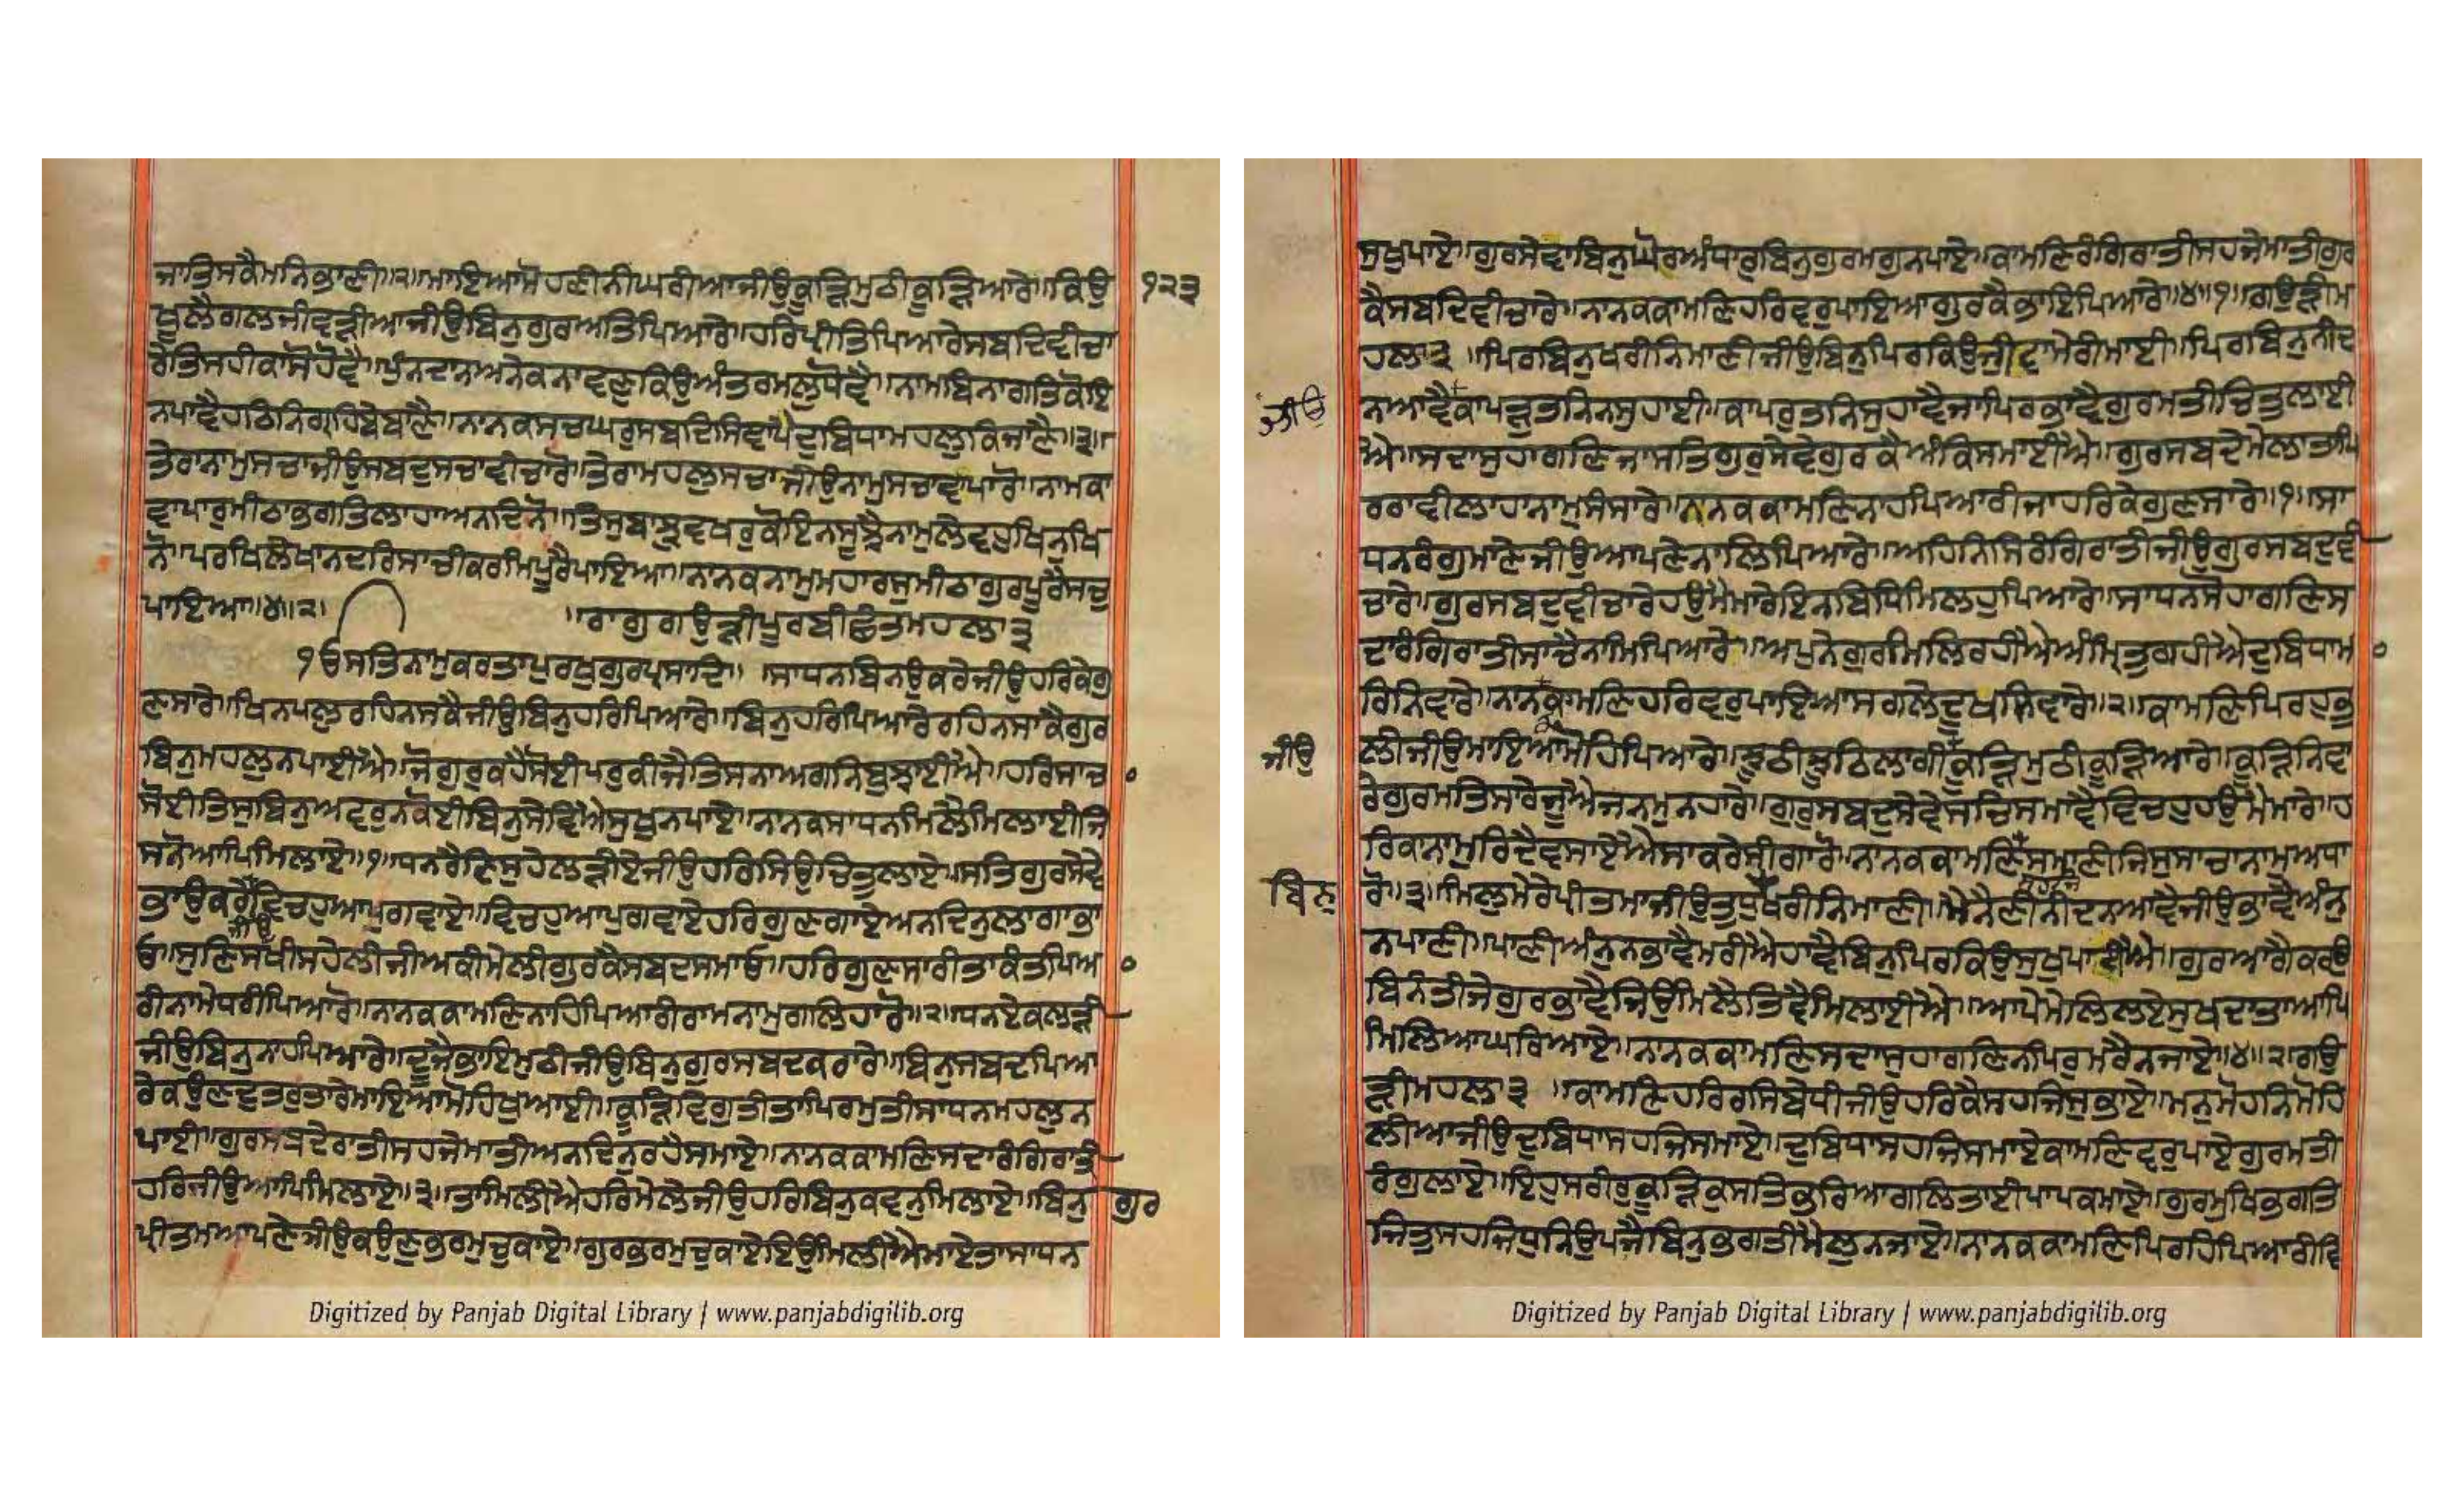 ਜਾਤਿਸਕੈਮਨਿਭਾਣੀ॥੨॥ਮਾਇਆਮੋਹਣੀਨੀਘਰੀਆਜੀਉਕੂੜਿਮੁਠੀਕੂੜਿਆਰੇ॥ਕਿਉ ੧੨੩
ਖੁਲੈਗਲਜੇਵੜੀਆਜੀਉਬਿਨੁਗੁਰਅਤਿਪਿਆਰੇ॥ਹਰਿਪ੍ਰੀਤਿਪਿਆਰੇਸਬਦਿਵੀਚਾ
ਰੇਤਿਸਹੀਕਾਸੋਹੋਵੈ॥ਪੁੰਨਦਾਨਅਨੇਕਨਾਵਣੁਕਿਉਅੰਤਰਮਲੁਧੋਵੈ॥ਨਾਮਬਿਨਾਗਤਿਕੋਇ
ਨਪਾਵੈਹਠਿਨਿਗ੍ਰਹਿਬੇਬਾਣੈ॥ਨਾਨਕਸਚਘਰੁਸਬਦਿਸਿਞਾਪੈਦੁਬਿਧਾਮਹਲੁਕਿਜਾਣੈ॥੩॥
ਤੇਰਾਨਾਮੁਸਚਾਜੀਉਸਬਦੁਸਚਾਵੀਚਾਰੋ॥ਤੇਰਾਮਹਲੁਸਚਾਜੀਉਨਾਮੁਸਚਾਵਾਪਾਰੋ॥ਨਾਮਕਾ
ਵਾਪਾਰੁਮੀਠਾਭਗਤਿਲਾਹਾਅਨਦਿਨੋ॥ਤਿਸੁਬਾਝੁਵਖਰੁਕੋਇਨਸੂਝੈਨਾਮੁਲੇਵਹੁਖਿਨੁਖਿ
ਨੋ॥ਪਰਖਿਲੇਖਾਨਦਰਿਸਾਚੀਕਰਮਿਪੂਰੈਪਾਇਆ॥ਨਾਨਕਨਾਮੁਮਹਾਰਸੁਮੀਠਾਗੁਰਪੂਰੈਸਚੁ
ਪਾਇਆ॥੪॥੨॥ ॥ਰਾਗੁਗਉੜੀਪੂਰਬੀਛੰਤਮਹਲਾ੩
੧ਓਸਤਿਨਾਮੁਕਰਤਾਪੁਰਖੁਗੁਰਪ੍ਰਸਾਦਿ॥ ॥ਸਾਧਨਬਿਨਉਕਰੇਜੀਉਹਰਿਕੇਗੁ
ਣਸਾਰੇ॥ਖਿਨਪਲੁਰਹਿਨਸਕੈਜੀਉਬਿਨੁਹਰਿਪਿਆਰੇ॥ਬਿਨੁਹਰਿਪਿਆਰੇਰਹਿਨਸਾਕੈਗੁਰ
ਬਿਨੁਮਹਲੁਨਪਾਈਐ॥ਜੋਗੁਰੁਕਹੈਸੋਈਪਰੁਕੀਜੈਤਿਸਨਾਅਗਨਿਬੁਝਾਈਐ॥ਹਰਿਸਾਚ
ਸੋਈਤਿਸੁਬਿਨੁਅਵਰੁਨਕੋਈਬਿਨੁਸੇਵਿਐਸੁਖੁਨਪਾਏ॥ਨਾਨਕਸਾਧਨਮਿਲੈਮਿਲਾਈਜਿ
ਸਨੋਆਪਿਮਿਲਾਏ॥੧॥ਧਨਰੈਣਿਸੁਹੇਲੜੀਏਜੀਉਹਰਿਸਿਉਚਿਤੁਲਾਏ॥ਸਤਿਗੁਰਸੇਵੇ
ਭਾਉਕਰੇਵਿਚਹੁਆਪੁਗਵਾਏ॥ਵਿਚਹੁਆਪੁਗਵਾਏਹਰਿਗੁਣਗਾਏਅਨਦਿਨੁਲਾਗਾਭਾ
ਜੀਉ
ਓ॥ਸੁਣਿਸਖੀਸਹੇਲੀਜੀਅਕੀਮੇਲੀਗੁਰਕੈਸਬਦਸਮਾਓ॥ਹਰਿਗੁਣਸਾਰੀਤਾਕੰਤਪਿਆ
ਰੀਨਾਮੇਧਰੀਪਿਆਰੋ॥ਨਾਨਕਕਾਮਣਿਨਾਹਪਿਆਰੀਰਾਮਨਾਮੁਗਲਿਹਾਰੋ॥੨॥ਧਨਏਕਲੜੀ
ਜੀਉਬਿਨੁਨਾਹਪਿਆਰੇ॥ਦੂਜੈਭਾਇਮੁਠੀਜੀਉਬਿਨੁਗੁਰਸਬਦਕਰਾਰੇ॥ਬਿਨੁਸਬਦਪਿਆ
ਰੇਕਉਣੁਦੁਤਰੁਤਾਰੇਮਾਇਆਮੋਹਿਖੁਆਈ॥ਕੂੜਿਵਿਗੁਤੀਤਾਪਿਰਮੁਤੀਸਾਧਨਮਹਲੁਨ
ਪਾਈ॥ਗੁਰਸਬਦੇਰਾਤੀਸਹਜੇਮਾਤੀਅਨਦਿਨੁਰਹੈਸਮਾਏ॥ਨਾਨਕਕਾਮਣਿਸਦਾਰੰਗਿਰਾਤੀ
ਹਰਿਜੀਉਆਪਿਮਿਲਾਏ॥੩॥ਤਾਮਿਲੀਐਹਰਿਮੇਲੇਜੀਉਹਰਿਬਿਨੁਕਵਨੁਮਿਲਾਏ॥ਬਿਨੁ ਗੁਰ
ਪ੍ਰੀਤਮਆਪਣੇਜੀਉਕਉਣੁਭਰਮੁਚੁਕਾਏ॥ਗੁਰਭਰਮੁਚੁਕਾਏਇਉਮਿਲੀਐਮਾਏਤਾਸਾਧਨ
Digitized by Panjab Digital Library | www.panjabdigilib.org
ਸੁਖੁਪਾਏ॥ਗੁਰਸੇਵਾਬਿਨੁਘੋਰਅੰਧਾਰੁਬਿਨੁਗੁਰਮਗੁਨਪਾਏ॥ਕਾਮਣਿਰੰਗਿਰਾਤੀਸਹਜੇਮਾਤੀਗੁਰ
ਕੈਸਬਦਿਵੀਚਾਰੇ॥ਨਾਨਕਕਾਮਣਿਹਰਿਵਰੁਪਾਇਆਗੁਰਕੈਭਾਇਪਿਆਰੇ॥੪॥੧॥ਗਉੜੀਮ
ਹਲਾ੩ ॥ਪਿਰਬਿਨੁਖਰੀਨਿਮਾਣੀਜੀਉਬਿਨੁਪਿਰਕਿਉਜੀਵਾਮੇਰੀਮਾਈ॥ਪਿਰਬਿਨੁਨੀਦ
ਜੀਉ ਨਆਵੈਕਾਪੜੁਤਨਿਨਸੁਹਾਈ॥ਕਾਪਰੁਤਨਿਸੁਹਾਵੈਜਾਪਿਰਭਾਵੈਗੁਰਮਤੀਚਿਤੁਲਾਈ
ਐ॥ਸਦਾਸੁਹਾਗਣਿਜਾਸਤਿਗੁਰੁਸੇਵੇਗੁਰਕੈਅੰਕਿਸਮਾਈਐ॥ਗੁਰਸਬਦੇਮੇਲਾਤਾਪਿ
ਰਰਾਵੀਲਾਹਾਨਾਮੁਸੰਸਾਰੇ॥ਨਾਨਕਕਾਮਣਿਨਾਹਪਿਆਰੀਜਾਹਰਿਕੇਗੁਣਸਾਰੇ॥੧॥ਸਾ
ਧਨਰੰਗੁਮਾਣੇਜੀਉਆਪਣੇਨਾਲਿਪਿਆਰੇ॥ਅਹਿਨਿਸਿਰੰਗਿਰਾਤੀਜੀਉਗੁਰਸਬਦੁਵੀ
ਚਾਰੇ॥ਗੁਰਸਬਦੁਵੀਚਾਰੇਹਉਮੈਮਾਰੇਇਨਬਿਧਿਮਿਲਹੁਪਿਆਰੇ॥ਸਾਧਨਸੋਹਾਗਣਿਸ
ਦਾਰੰਗਿਰਾਤੀਸਾਚੈਨਾਮਿਪਿਆਰੇ॥ਅਪੁਨੇਗੁਰਮਿਲਿਰਹੀਐਅੰਮ੍ਰਿਤੁਗਹੀਐਦੁਬਿਧਾਮਾ
ਰਿਨਿਵਾਰੇ॥ਨਾਨਕਾਮਣਿਹਰਿਵਰੁਪਾਇਆਸਗਲੇਦੂਖਨਿਵਾਰੇ॥੨॥ਕਾਮਣਿਪਿਰਹੁਭੁ
ਜੀਉ ਲੀਜੀਉਮਾਇਆਮੋਹਿਪਿਆਰੇ॥ਝੂਠੀਝੂਠਿਲਗੀਕੂੜਿਮੁਠੀਕੂੜਿਆਰੇ॥ਕੂੜਿਨਿਵਾ
ਰੇਗੁਰਮਤਿਸਾਰੇਜੂਐਜਨਮੁਨਹਾਰੇ॥ਗੁਰੁਸਬਦੁਸੇਵੇਸਚਿਸਮਾਵੈਵਿਚਹੁਹਉਮੈਮਾਰੇ॥ਹ
ਰਿਕਾਨਾਮੁਰਿਦੈਵਸਾਏਐਸਾਕਰੇਸੀਗਾਰੋ॥ਨਾਨਕਕਾਮਣਿਸਮਾਣੀਜਿਸੁਸਾਚਾਨਾਮੁਅਧਾ
ਬਿਨੁ ਰੋ॥੩॥ਮਿਲੁਮੇਰੇਪ੍ਰੀਤਮਾਜੀਉਤੁਧੁਖਰੀਨਿਮਾਣੀ॥ਮੈਨੈਣੀਨੀਦਨਆਵੈਜੀਉਭਾਵੈਅੰਨੁ
ਨਪਾਣੀ॥ਪਾਣੀਅੰਨੁਨਭਾਵੈਮਰੀਐਹਾਵੈਬਿਨੁਪਿਰਕਿਉਸੁਖੁਪਾਈਐ॥ਗੁਰਆਗੈਕਰਉ
ਬਿਨੰਤੀਜੇਗੁਰਭਾਵੈਜਿਉਮਿਲੈਤਿਵੈਮਿਲਾਈਐ॥ਆਪੇਮੇਲਿਲਏਸੁਖਦਾਤਾਆਪਿ
ਮਿਲਿਆਘਰਿਆਏ॥ਨਾਨਕਕਾਮਣਿਸਦਾਸੁਹਾਗਣਿਨਾਪਿਰੁਮਰੈਨਜਾਏ॥੪॥੨॥ਗਉ
ੜੀਮਹਲਾ੩ ॥ਕਾਮਣਿਹਰਿਰਸਿਬੇਧੀਜੀਉਹਰਿਕੈਸਹਜਿਸੁਭਾਏ॥ਮਨੁਮੋਹਨਿਮੋਹਿ
ਲੀਆਜੀਉਦੁਬਿਧਾਸਹਜਿਸਮਾਏ॥ਦੁਬਿਧਾਸਹਜਿਸਮਾਏਕਾਮਣਿਵਰੁਪਾਏਗੁਰਮਤੀ
ਰੰਗੁਲਾਏ॥ਇਹੁਸਰੀਰੁਕੂੜਿਕੁਸਤਿਭਰਿਆਗਲਿਤਾਈਪਾਪਕਮਾਏ॥ਗੁਰਮੁਖਿਭਗਤਿ
ਜਿਤੁਸਹਜਿਧੁਨਿਉਪਜੈਬਿਨੁਭਗਤੀਮੈਲੁਨਜਾਏ॥ਨਾਨਕਕਾਮਣਿਪਿਰਹਿਪਿਆਰੀਵਿ
Digitized by Panjab Digital Library | www.panjabdigilib.org